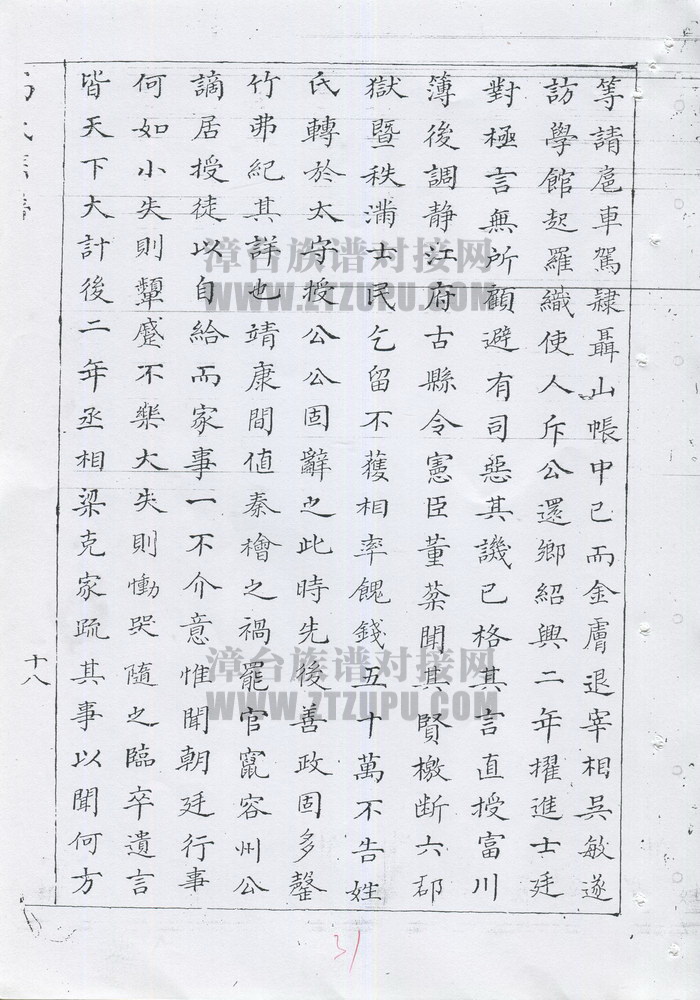 等請扈車駕隷聶山帳中已而金膚退宰相吳敏遂
訪學館起羅織使人斥公還鄉紹興二年擢進士廷
對極言無所顧避有司惡其譏已格其言直授富川
簿後調静江府古縣令憲臣董棻聞其賢檄斷六郡
獄曁秩滿士民乞留不獲相率餽錢五十萬不告姓
氏轉於太守授公公固辭之此時先後善政固多罄
竹弗紀其詳也靖康間值秦檜之禍罷官竄容州公
謫居授徒以自給而家事一不介意惟聞朝廷行事
何如小失則顰蹙不樂大失則慟哭隨之臨卒遺言
皆天下大計後二年丞相梁克家疏其事以聞何方
十八
31
漳台族谱对接网
WWW.ZTZUPU.COM
漳台族谱对接网
WWW.ZTZUPU.COM